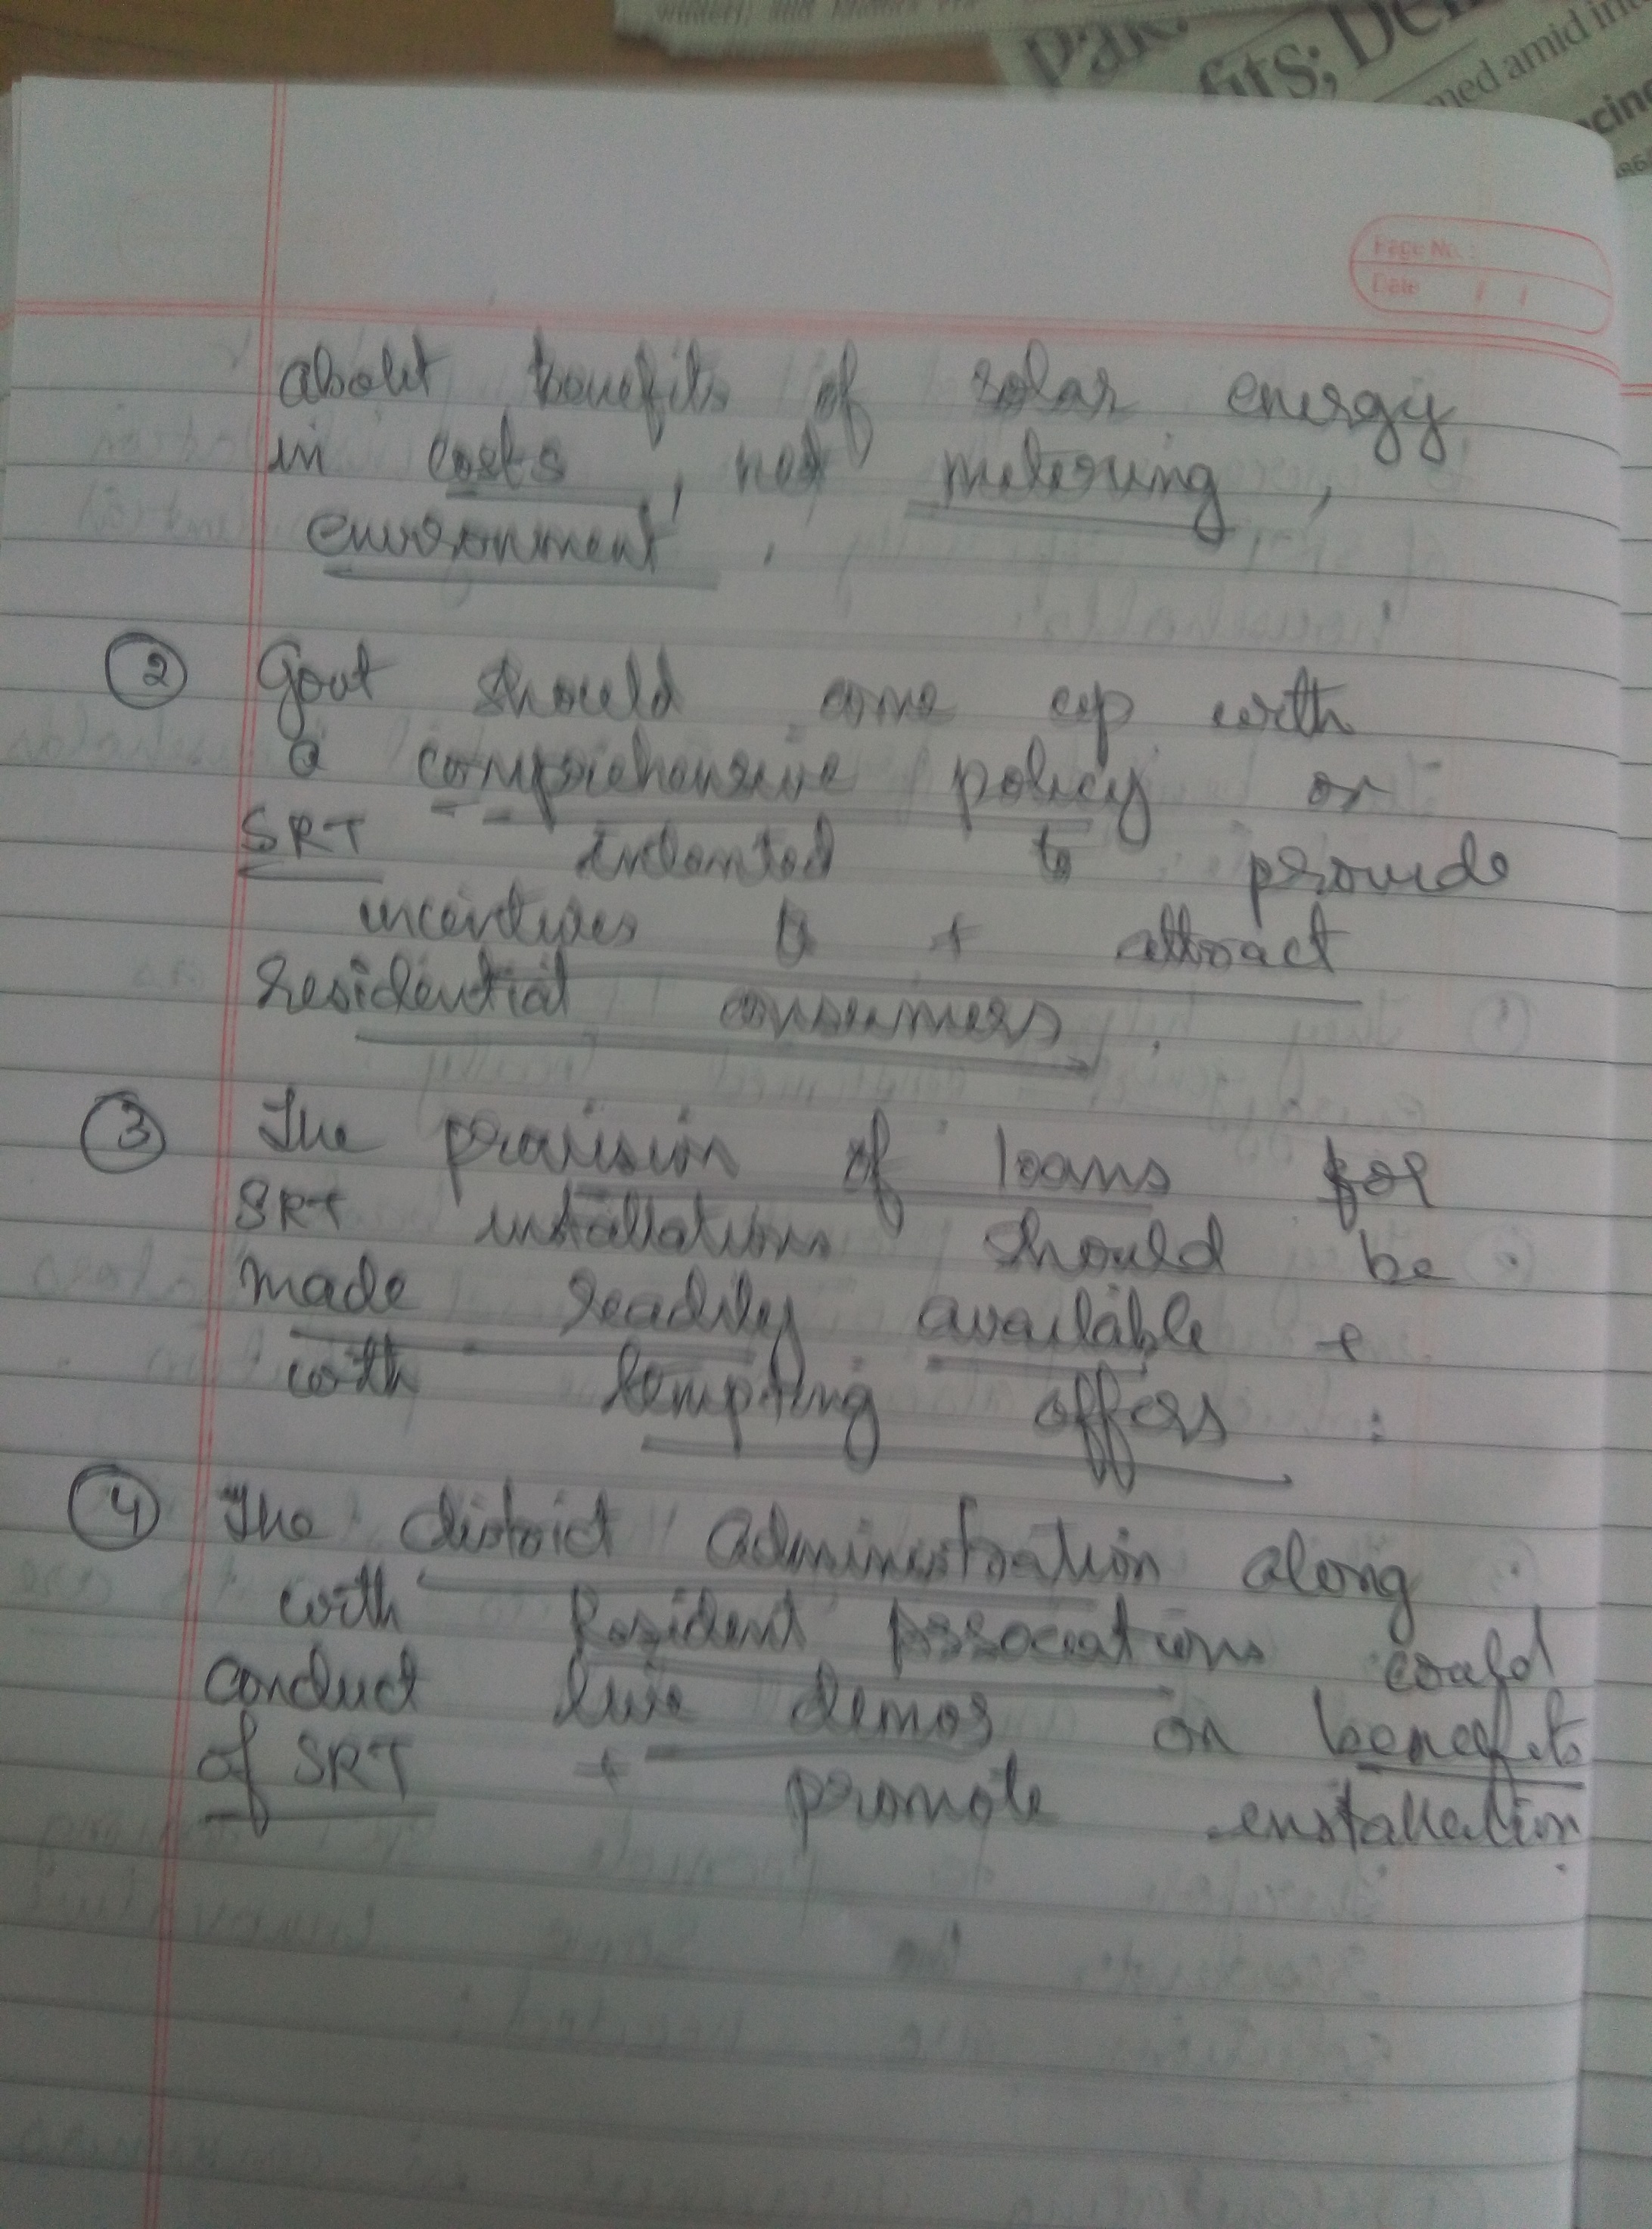 fits; Del
med amid in
Page No. :
Date / /
about benefits of solar energy
in costs, net metering,
environment.
2 Govt should come up with
a comprehensive policy on
SRT to provide
incentives to + attract
residential consumers.
3 The provision of loans for
SRT installations should be
made readily available +
with tempting offers.
4 The district administration along
with Resident Associations could
conduct live demos on benefits
of SRT + promote installation.